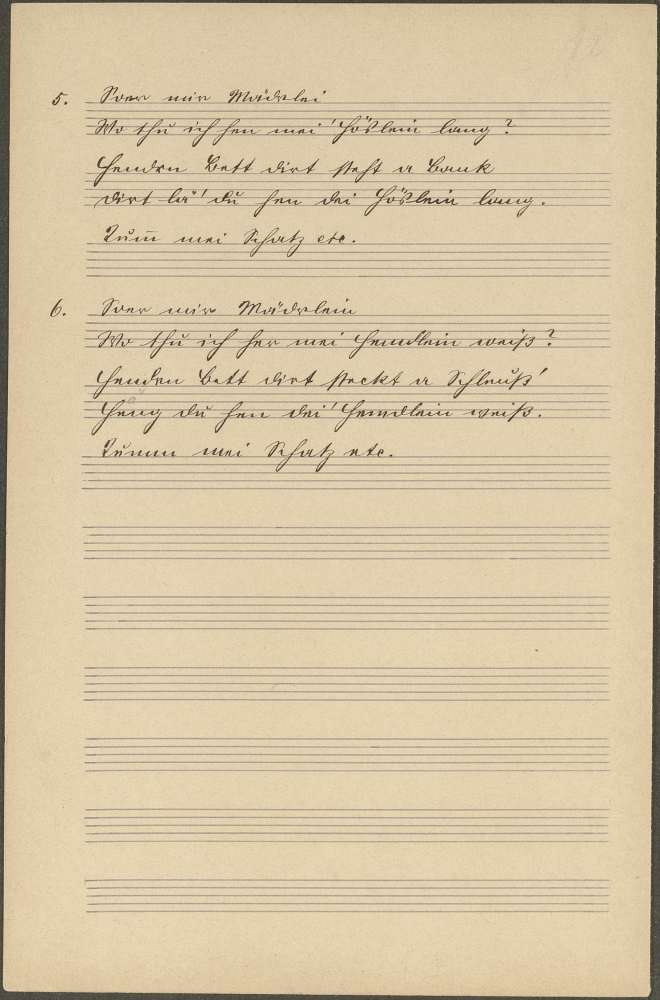 12
5. Soer mir Mädrlei
Wo thu ich hen mei' Höslein lang?
Hendrn Bett dirt steht a Bank
dirt lä' du hen dei Höslein lang.
Kum̅ mei Schatz etc.
6. Soer mir Mädrlein
Wo thu ich her mei Hemdlein weiß?
Henden Bett dirt steckt a Schleuß'
Häng du hen dei' Hemdlein weiß.
Kumm mei Schatz etc.